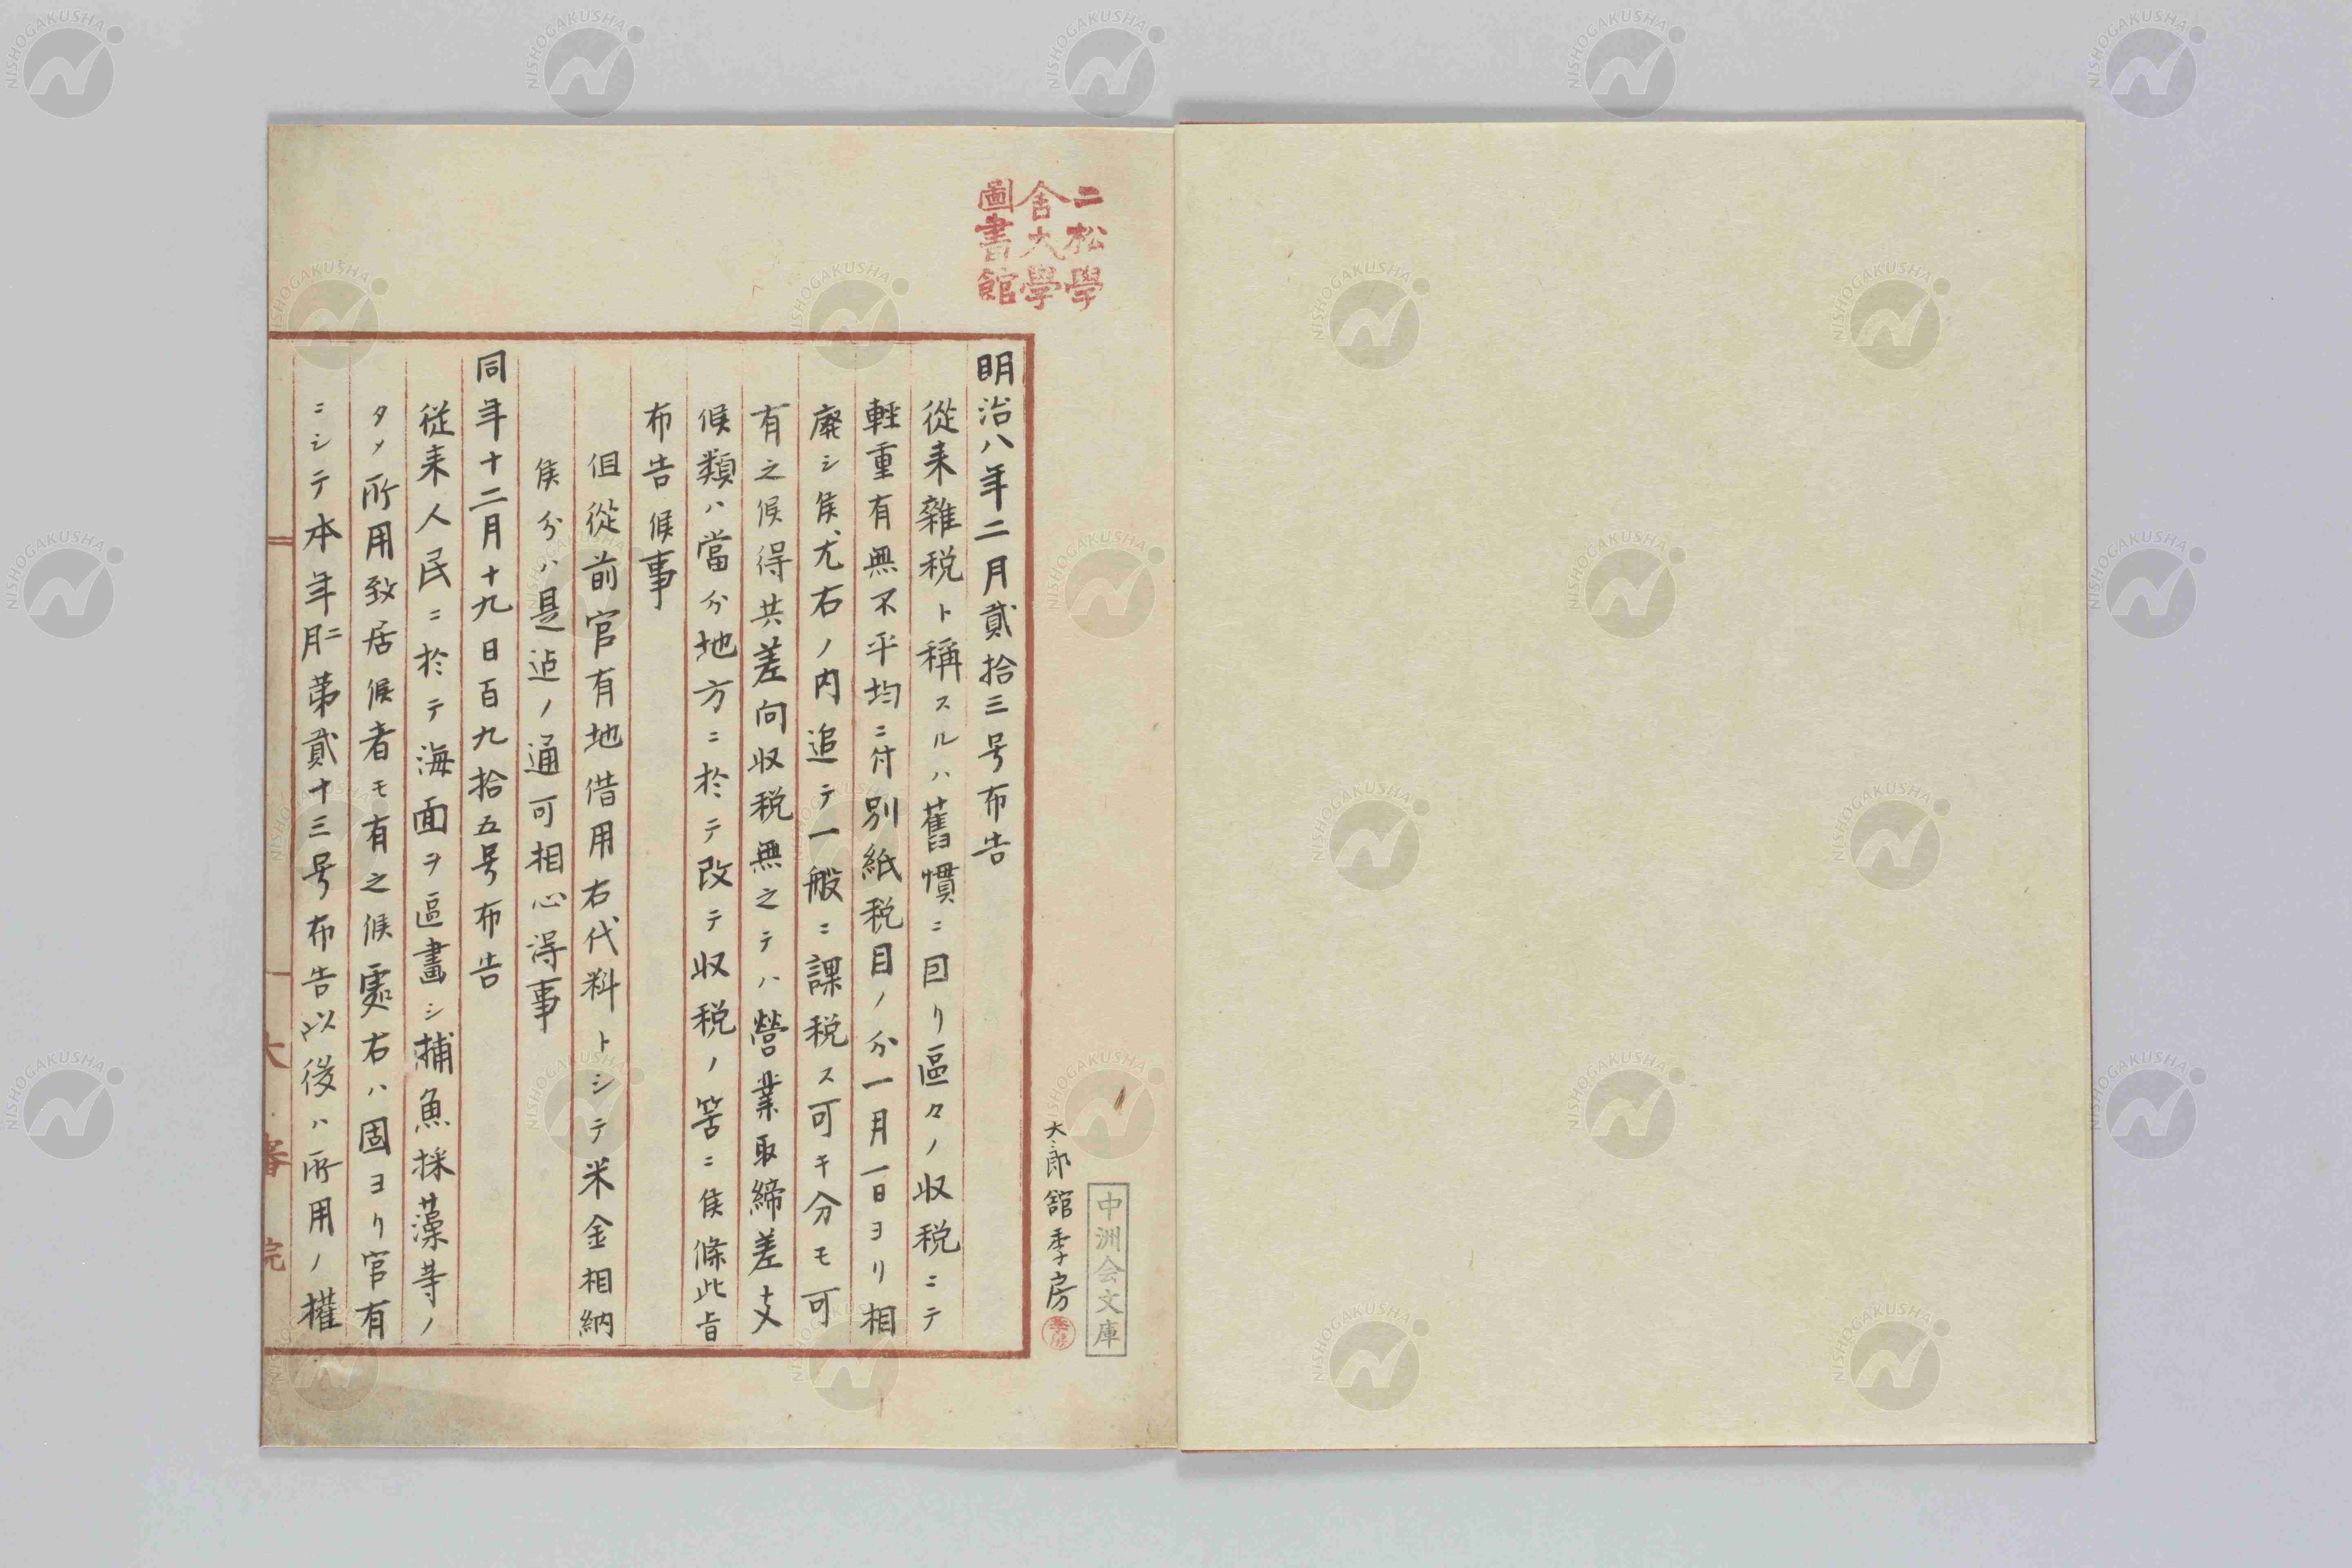 二松學
舍大學
圖書館
中洲会文庫
大三郎舘季房
明治八年二月貳拾三号布告
從来雜税ト稱スルハ舊慣ニ因リ區々ノ収税ニテ
輕重有無不平均ニ付別紙税目ノ分一月一日ヨリ相
廃シ候尤右ノ内追テ一般ニ課税ス可キ分モ可
有之候得共差向収税無之テハ營業取締差支
候類ハ當分地方ニ於テ改テ収税ノ筈ニ候條此旨
布告候事
但從前官有地借用右代料トシテ米金相納
候分ハ是迠ノ通可相心得事
同年十二月十九日百九拾五号布告
従来人民ニ於テ海面ヲ區畫シ捕魚採藻等ノ
タメ所用致居候者モ有之候處右ハ固ヨリ官有
ニシテ本年二月第貳十三号布告以後ハ所用ノ權
大審院